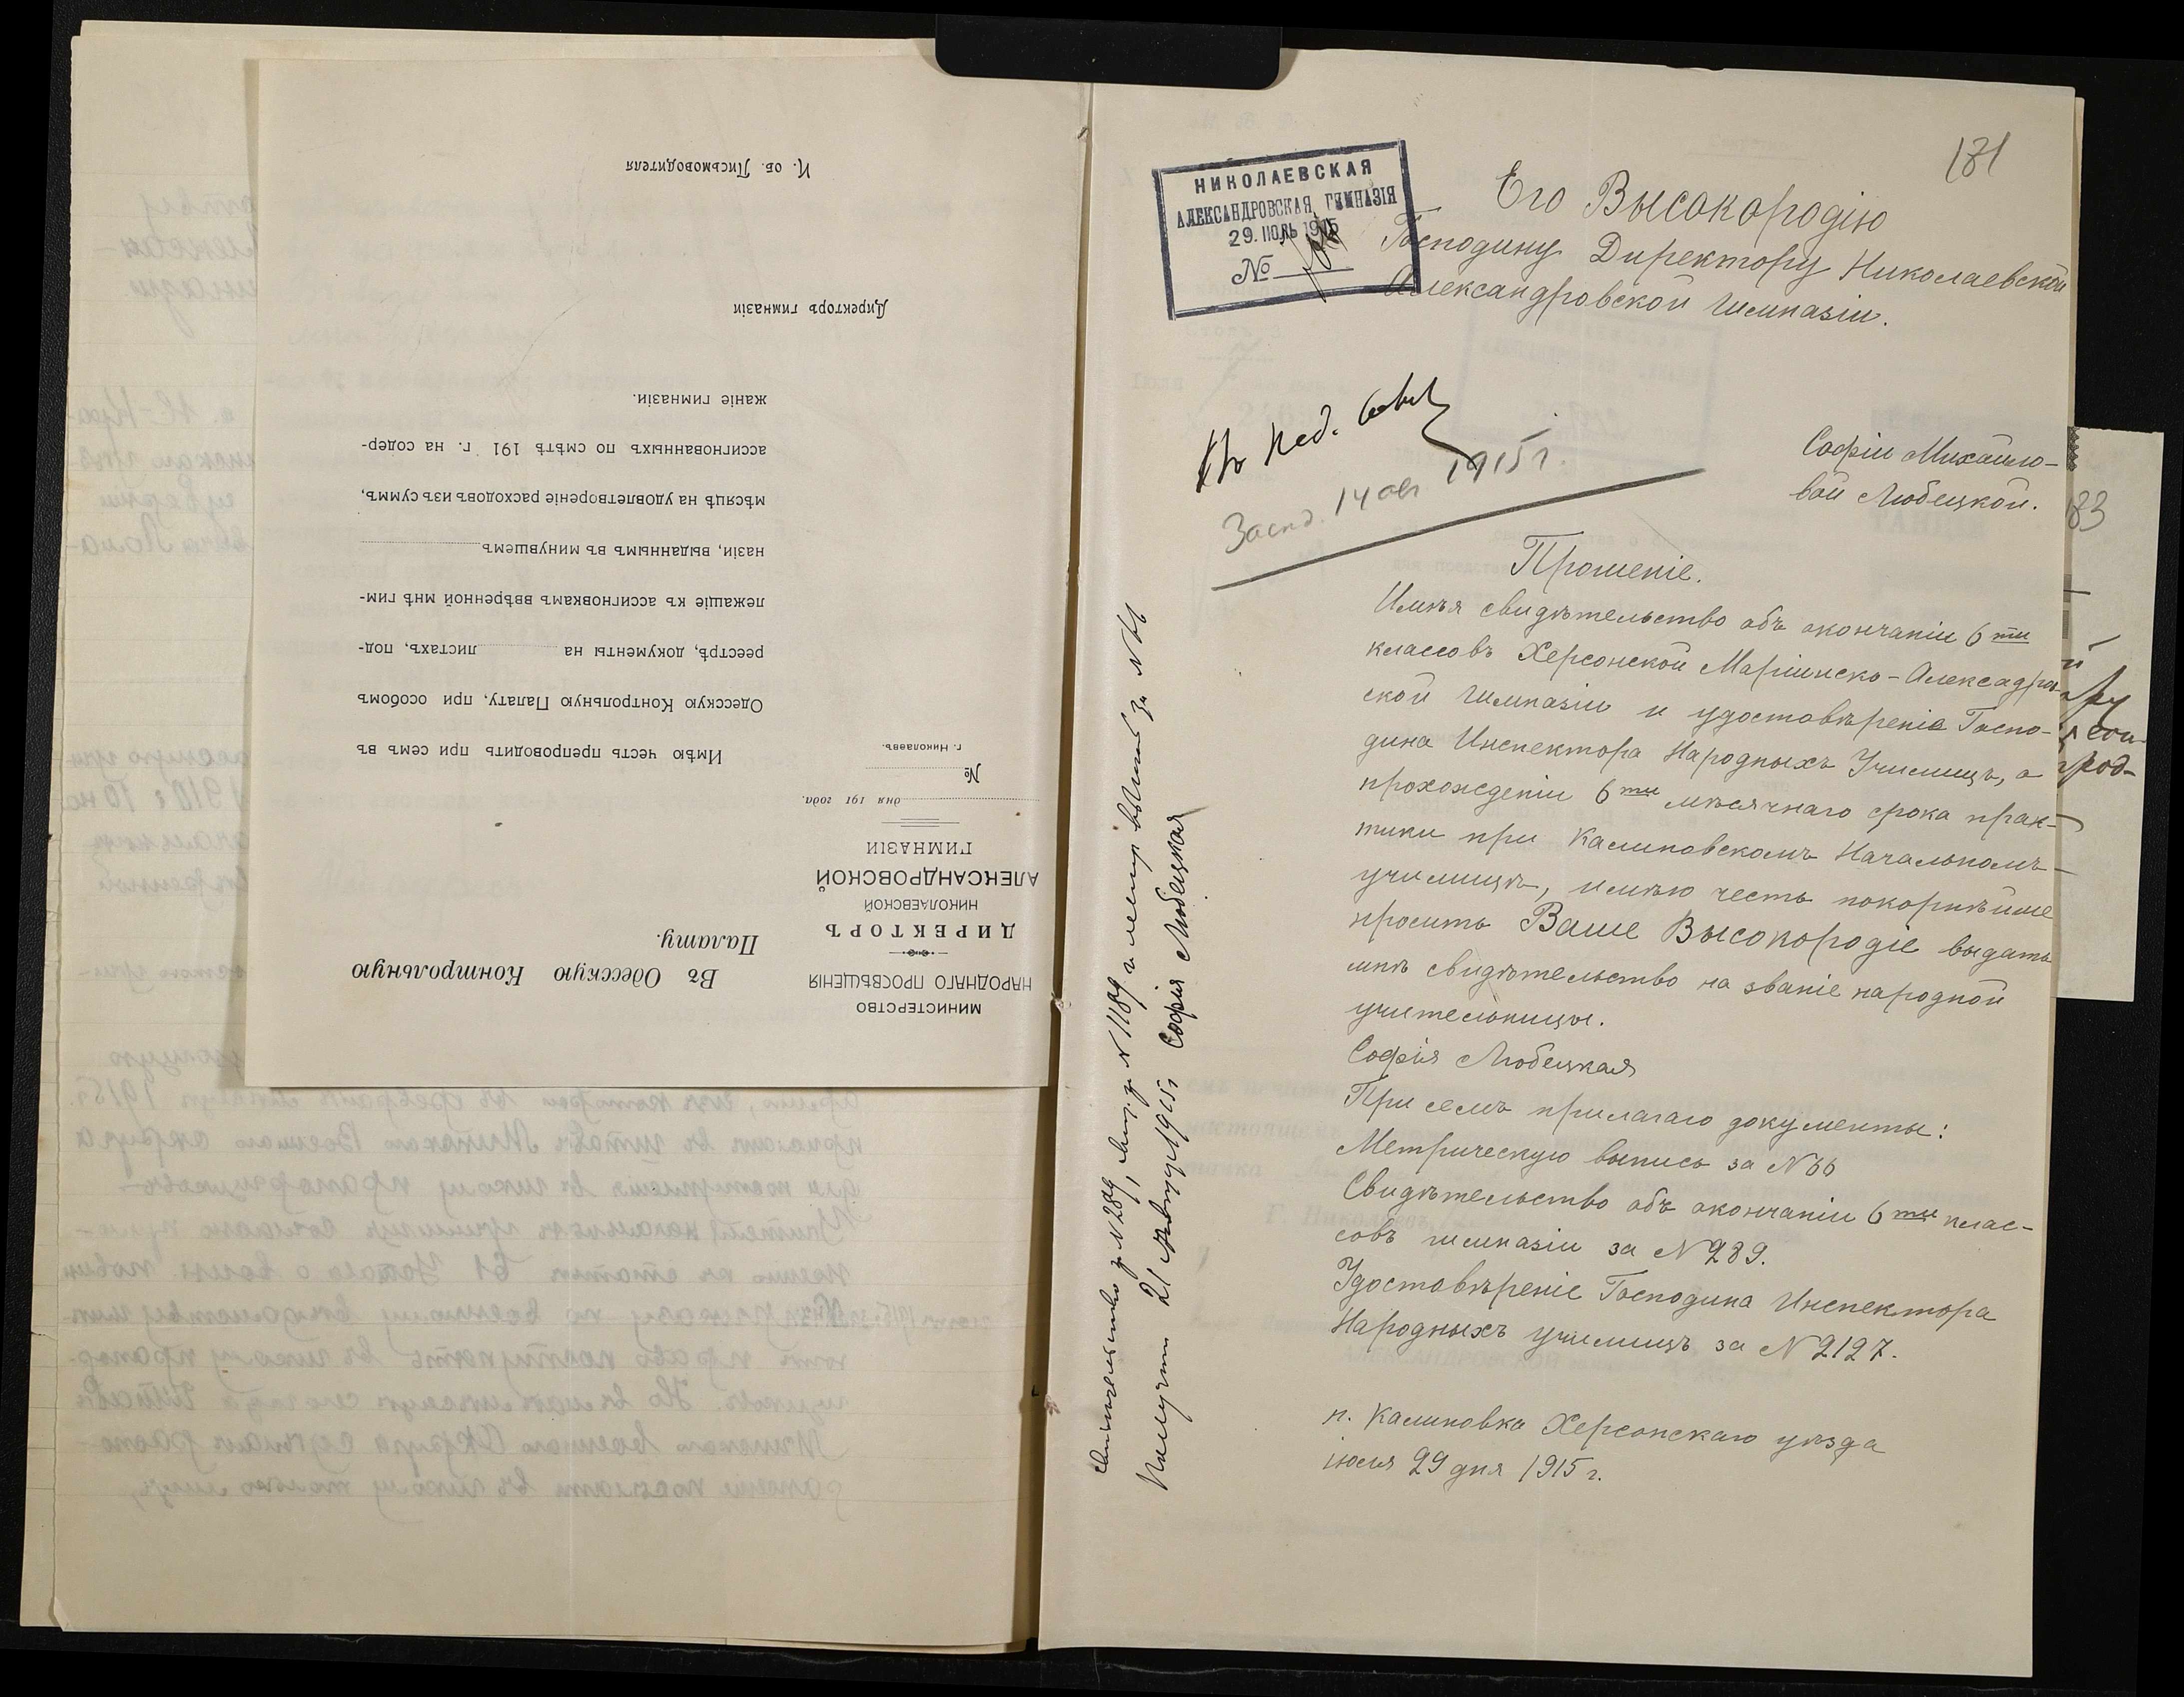 МИНИСТЕРСТВО
НАРОДНАГО ПРОСВѢЩЕНІЯ
ДИРЕКТОРЪ
НИКОЛАЕВСКОЙ
АЛЕКСАНДРОВСКОЙ
ГИМНАЗІИ
дня 191 года.
№
г. Николаевъ.
Въ Одесскую Контрольную
Палату.
Имѣю честь препроводить при семъ въ
Одесскую Контрольную Палату, при особомъ
реестрѣ, документы на листахъ, под-
лежащіе къ ассигновкамъ ввѣренной мнѣ гим-
назіи, выданнымъ въ минувшемъ
мѣсяцѣ на удовлетвореніе расходовъ изъ суммъ,
ассигнованныхъ по смѣтѣ 191 г. на содер-
жаніе гимназіи.
Директоръ гимназіи
И. об. Письмоводителя
181
НИКОЛАЕВСКАЯ
АЛЕКСАНДРОВСКАЯ ГИМНАЗІЯ
29. ІЮЛЬ 1915
№
Его Высокородію
Господину Директору Николаевской
Александровской гимназіи.
Къ пед. сов.
Засѣд. 14 авг 1915 г.
Софіи Михайло-
вой Любецкой.
Прошеніе.
Имѣя свидѣтельство объ окончаніи 6ти
классовъ Херсонской Маріинско-Александров-
ской гимназіи и удостовѣреніе Госпо-
дина Инспектора Народныхъ Училищъ, о
прохожденіи 6ти мѣсячнаго срока прак-
тики при Калиновскомъ Начальномъ
училищѣ, имѣю честь покорнѣйше
просить Ваше Высокородіе выдать
мнѣ свидѣтельство на званіе народной
учительницы.
Софія Любецкая
При семъ прилагаю документы:
Метрическую выпись за N 66
Свидѣтельство объ окончаніи 6ти клас-
совъ гимназіи за N 289.
Удостовѣреніе Господина Инспектора
Народныхъ училищъ за N 2127.
п. Калиновка Херсонскаго уѣзда
іюля 29 дня 1915 г.
Свидѣтельство за N 289, свид. за N 1189 и метр. выпись за N 66
Получила 21 Августа 1915 г. Софія Любецкая
183